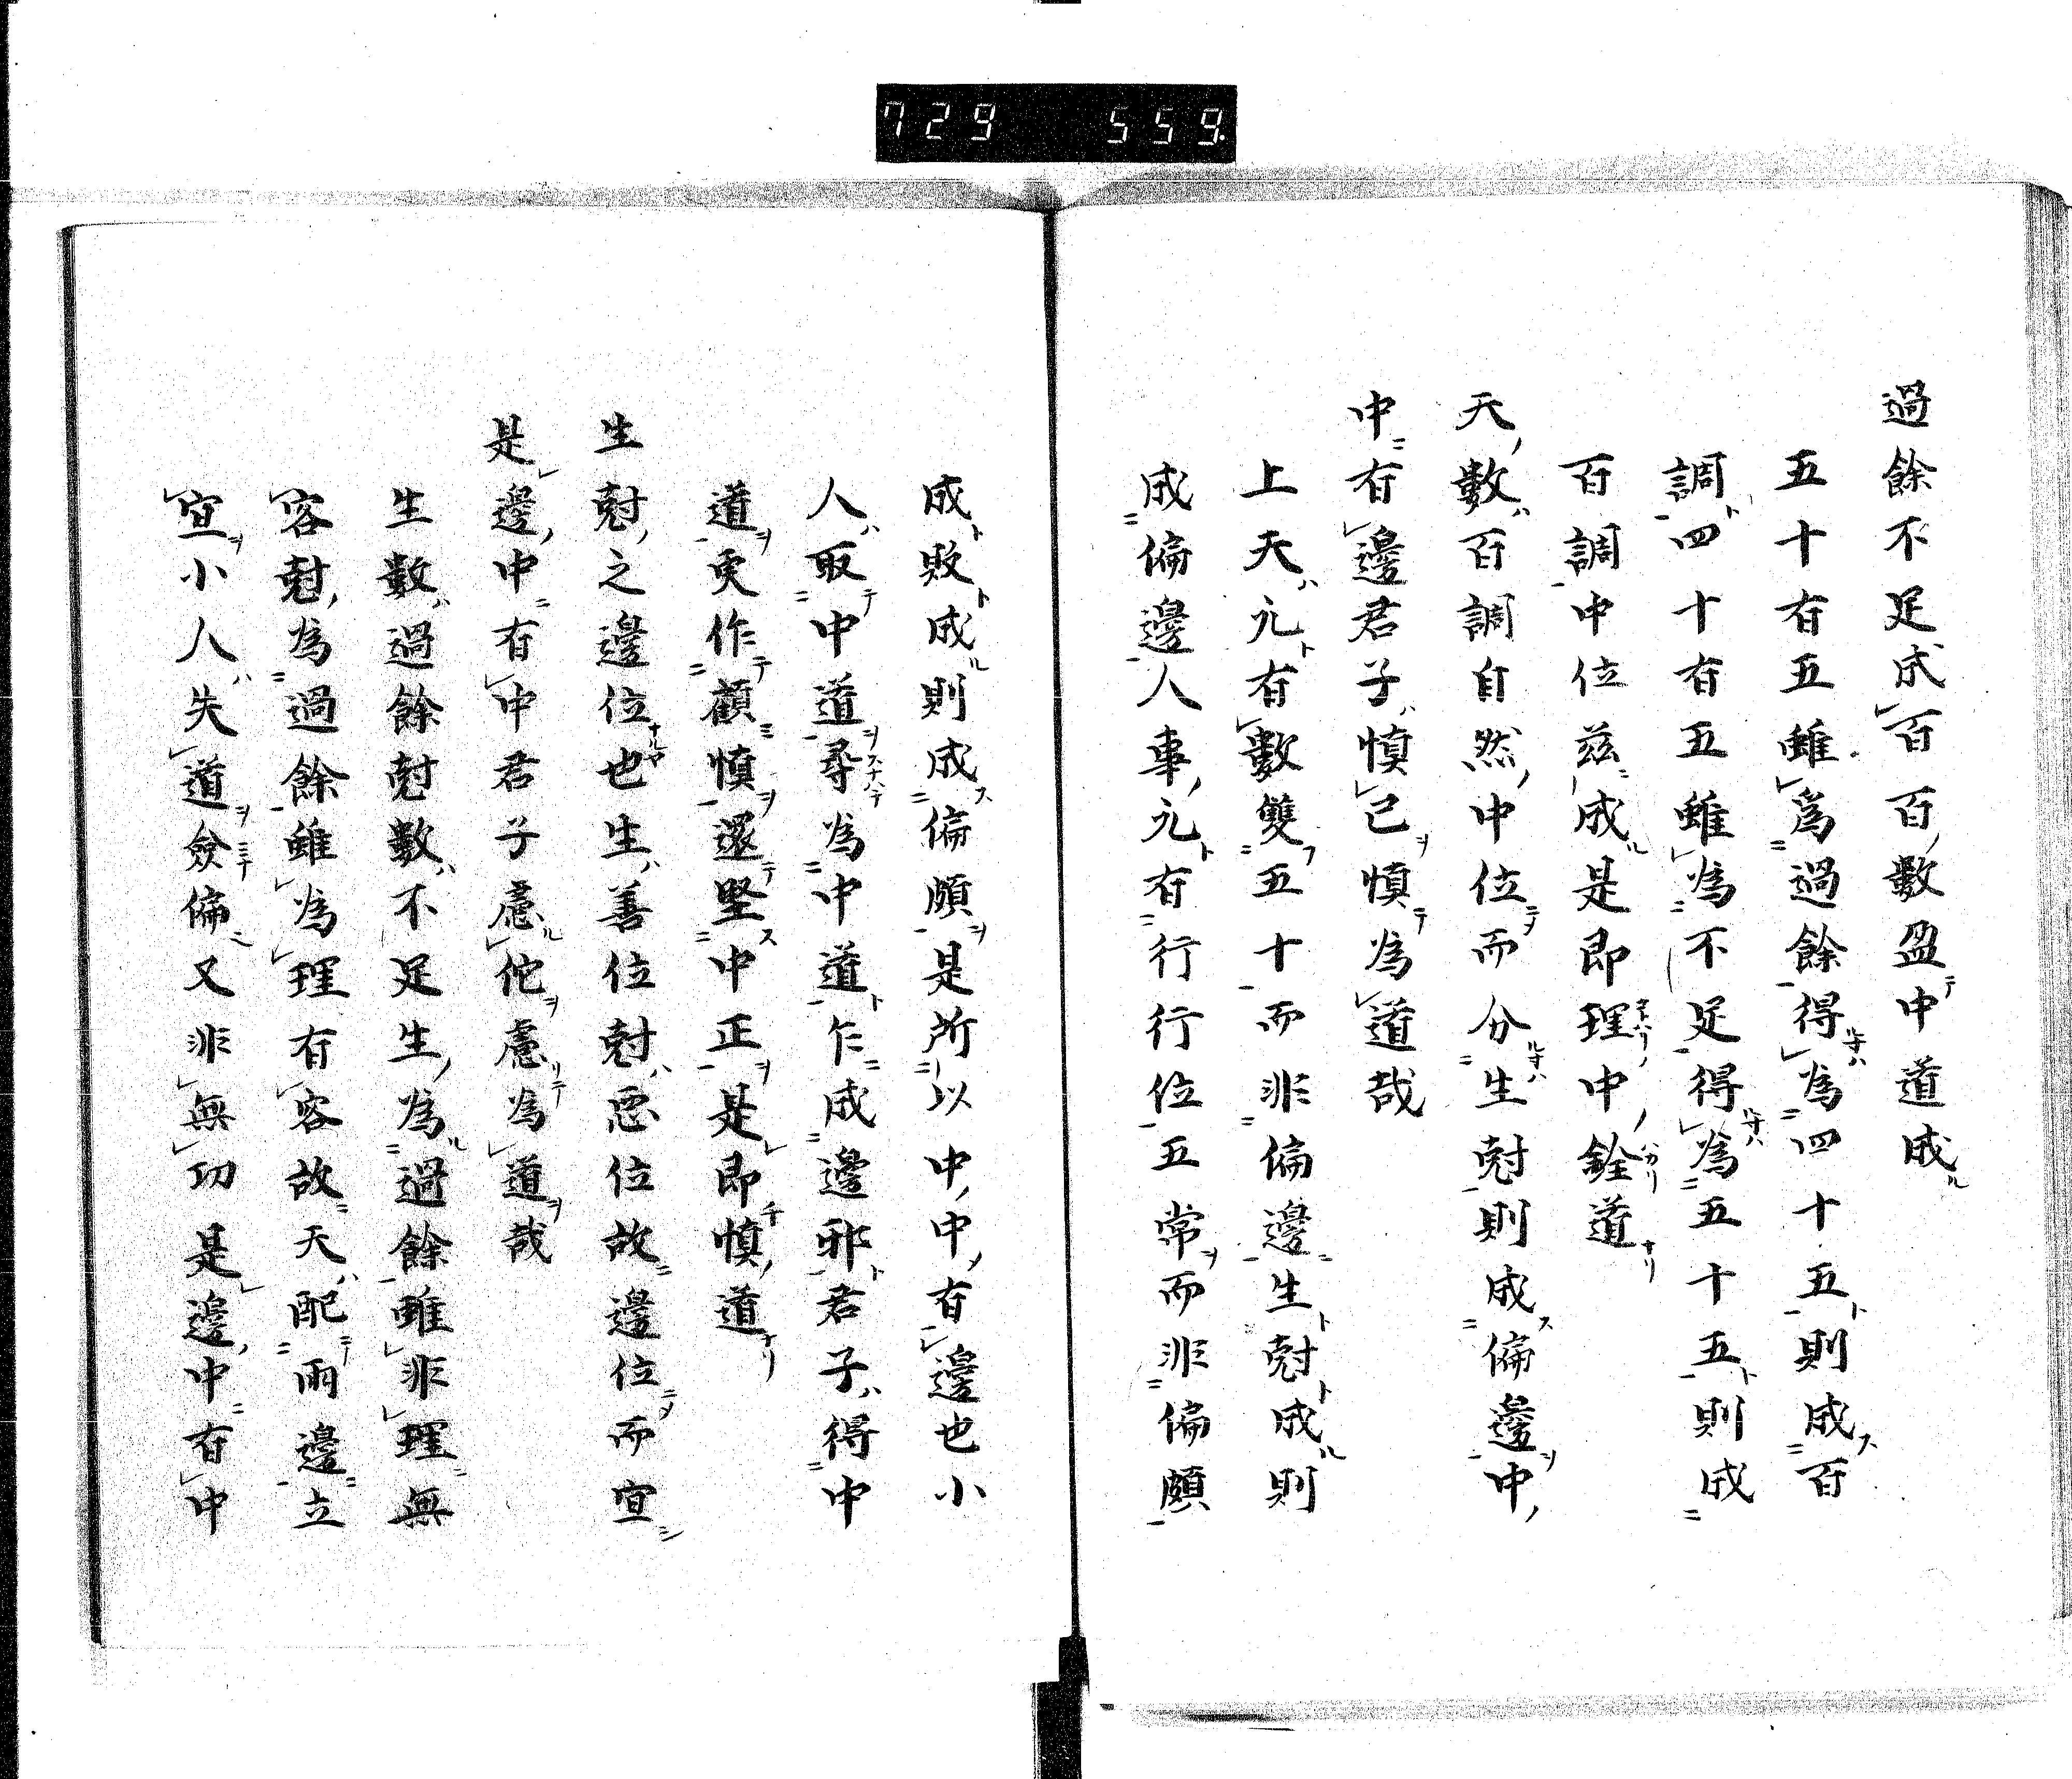 729 559.
過餘不足成百百數盈中道成
五十有五雖爲過餘得為四十五則成百
調四十有五雖為不足得為五十五則成
百調中位兹成是即理中銓道
天數百調自然中位而分生尅則成偏邊中
中有邊君子慎己慎為道哉
上天元有數雙五十而非偏邊生尅成則
成偏邊人事元有行行位五常而非偏頗
成敗成則成偏頗是所以中中有邊也小
人取中道尋為中道乍成邊邪君子得中
道更作顧慎還堅中正是即慎道
生尅之邊位也生善位尅惡位故邊位而宜
是邊中有中君子慮佗慮為道哉
生數過餘尅數不足生為過餘雖非理無
容尅為過餘雖為理有容故天配兩邊立
宜小人失道僉偏又非無功是邊中有中